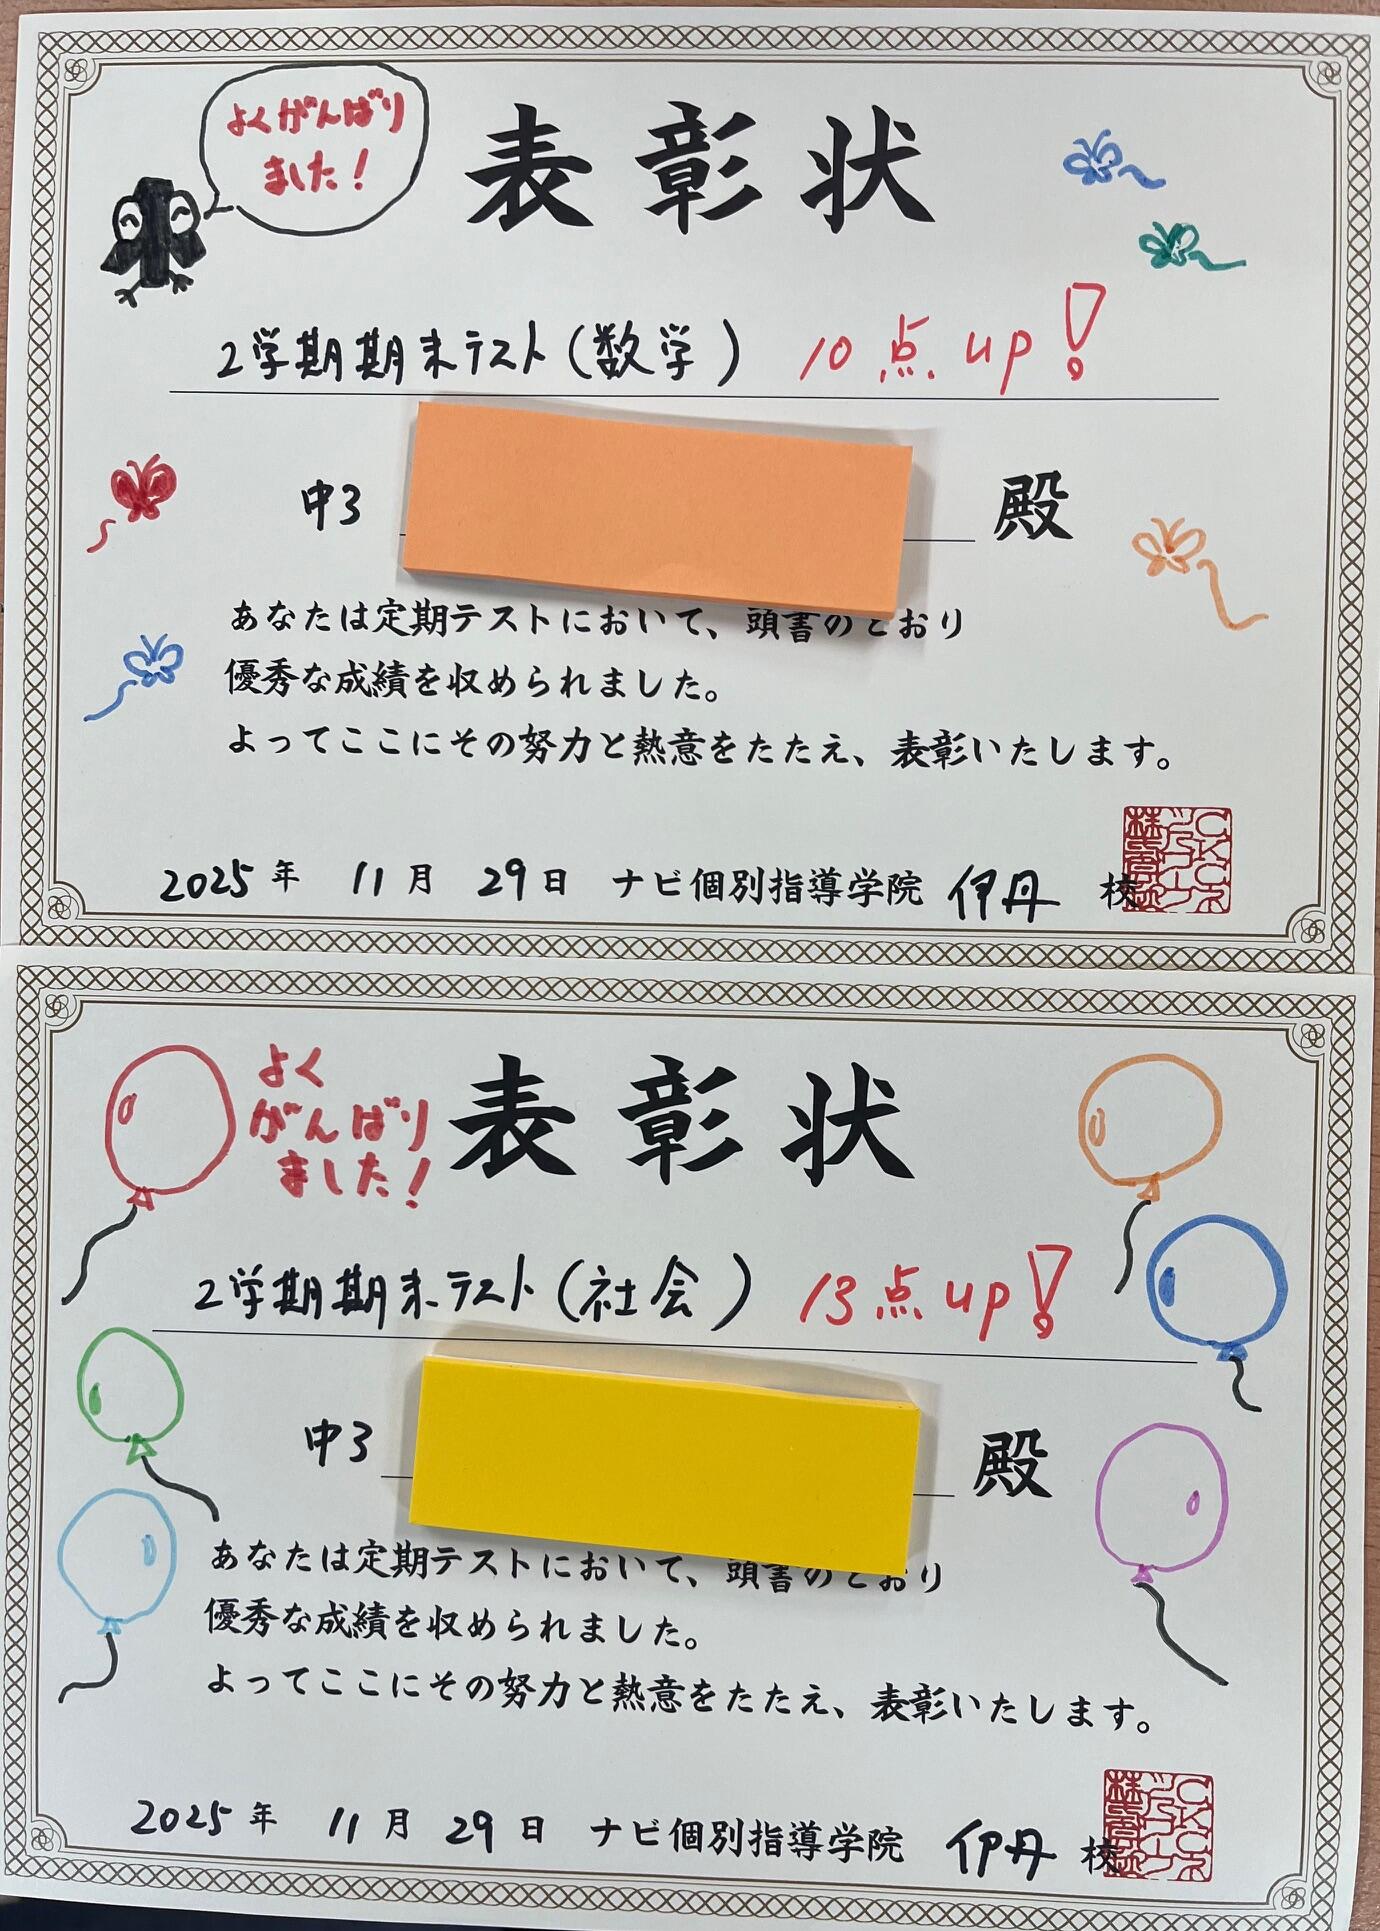 よくがんばり
ました！
表彰状
2学期期末テスト(数学) 10点up!
中3 殿
あなたは定期テストにおいて、頭書のとおり
優秀な成績を収められました。
よってここにその努力と熱意をたたえ、表彰いたします。
2025年 11月 29日 ナビ個別指導学院 伊丹 校
よく
がんばり
ました！
表彰状
2学期期末テスト(社会) 13点up!
中3 殿
あなたは定期テストにおいて、頭書のとおり
優秀な成績を収められました。
よってここにその努力と熱意をたたえ、表彰いたします。
2025年 11月 29日 ナビ個別指導学院 伊丹 校